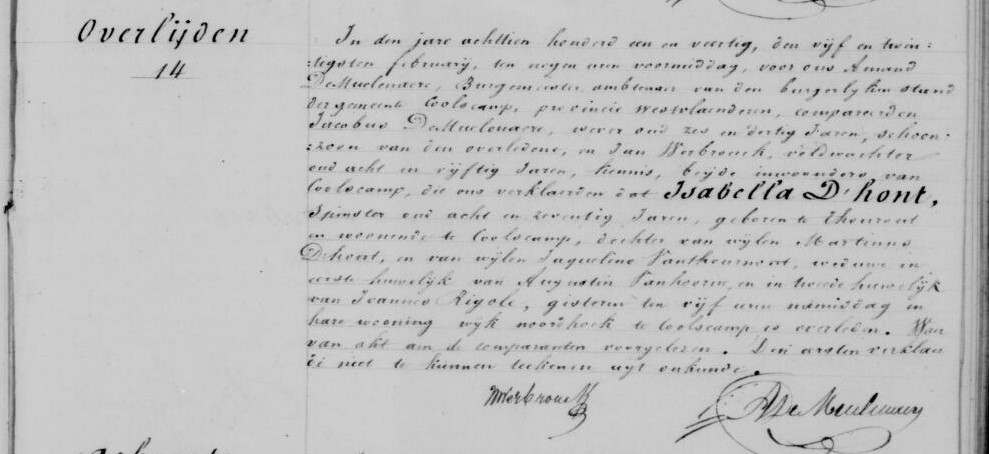 Overlijden
14
In den jare achttien honderd een en veertig, den vijf en twin=
=tigsten february, ten negen uren voormiddag, voor ons Amand
DeMuelenaere, Burgemeester ambtenaar van den burgerlyken stand
der gemeente Coolscamp, provincie Westvlaenderen, compareerden
Jacobus DeMuelenaere, wever oud zes en dertig Jaren, schoon=
=zoon van den overledene, en Jan Werbrouck, veldwachter
oud acht en vyftig Jaren, kennis, beyde inwoonders van
Coolscamp, die ons verklaerden dat Isabella D'hont,
Spinster oud acht en zeventig Jaren, geboren te Thourout
en woonende te Coolscamp, dochter van wylen Martinus
D'hont, en van wylen Jaqueline Vanthournout, weduwe in
eerste huwelyk van Augustin Vanhoorne, en in tweede huwelyk
van Joannes Rigole, gisteren ten vyf uren namiddag in
hare wooning wyk noordhoek te Coolscamp, is overleden. Waer
van akt aen de comparanten voorgelezen. Den eersten verklaer
de niet te kunnen teekenen uyt onkunde.
Werbrouck
A De Muelenaere